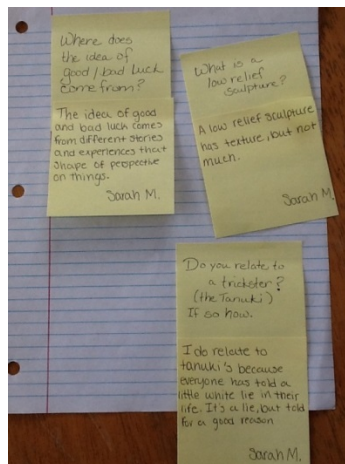 Where does
the idea of
good/bad luck
come from?
The idea of good
and bad luck comes
from different stories
and experiences that
shape of perspective
on things.
Sarah M.
What is a
low relief
sculpture?
A low relief sculpture
has texture, but not
much.
Sarah M.
Do you relate to
a trickster?
(the Tanuki)
If so how.
I do relate to
tanuki's because
everyone has told a
little white lie in their
life. It's a lie, but told
for a good reason
Sarah M.